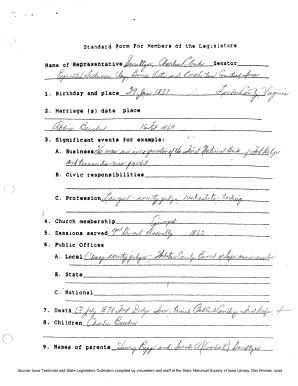 Standard Form For Members of the Legislature
Name of Representative Smeltzer, Charles Blake Senator
Represented Dickinson, Clay,
1. Birthday and place 29 Jan 1837 Loudon County, Virginia
2. Marriage (s) date place
Abbie Booker 16 Sep 1869
3. Significant events for example:
A. Business He was an incorporator of the First National Bank of Fort Dodge
and
B. Civic responsibilities
C. Profession Lawyer - county judge, real estate, banking
4. Church membership
5. Sessions served 9th General Assembly 1862
6. Public Offices
A. Local Clay county judge; Webster County Board of Supervisors member
B. State
C. National
7. Death 13 July 1870 Fort Dodge, Iowa; Fort Dodge Iowa
8. Children Charles Booker
9. Names of parents Henry Rigg and Sarah A (Cordell) Smeltzer
Source: Iowa Territorial and State Legislators Collection compiled by volunteers and staff at the State Historical Society of Iowa Library, Des Moines, Iowa.